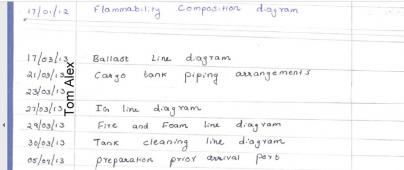 17/01/12 Flammability Composition diagram
17/03/13 Ballast Line diagram
21/03/13 Cargo tank piping arrangements
23/03/13
27/03/13 IG line diagram
29/03/13 Fire and Foam line diagram
30/03/13 Tank cleaning line diagram
05/04/13 preparation prior arrival port
Tom Alex